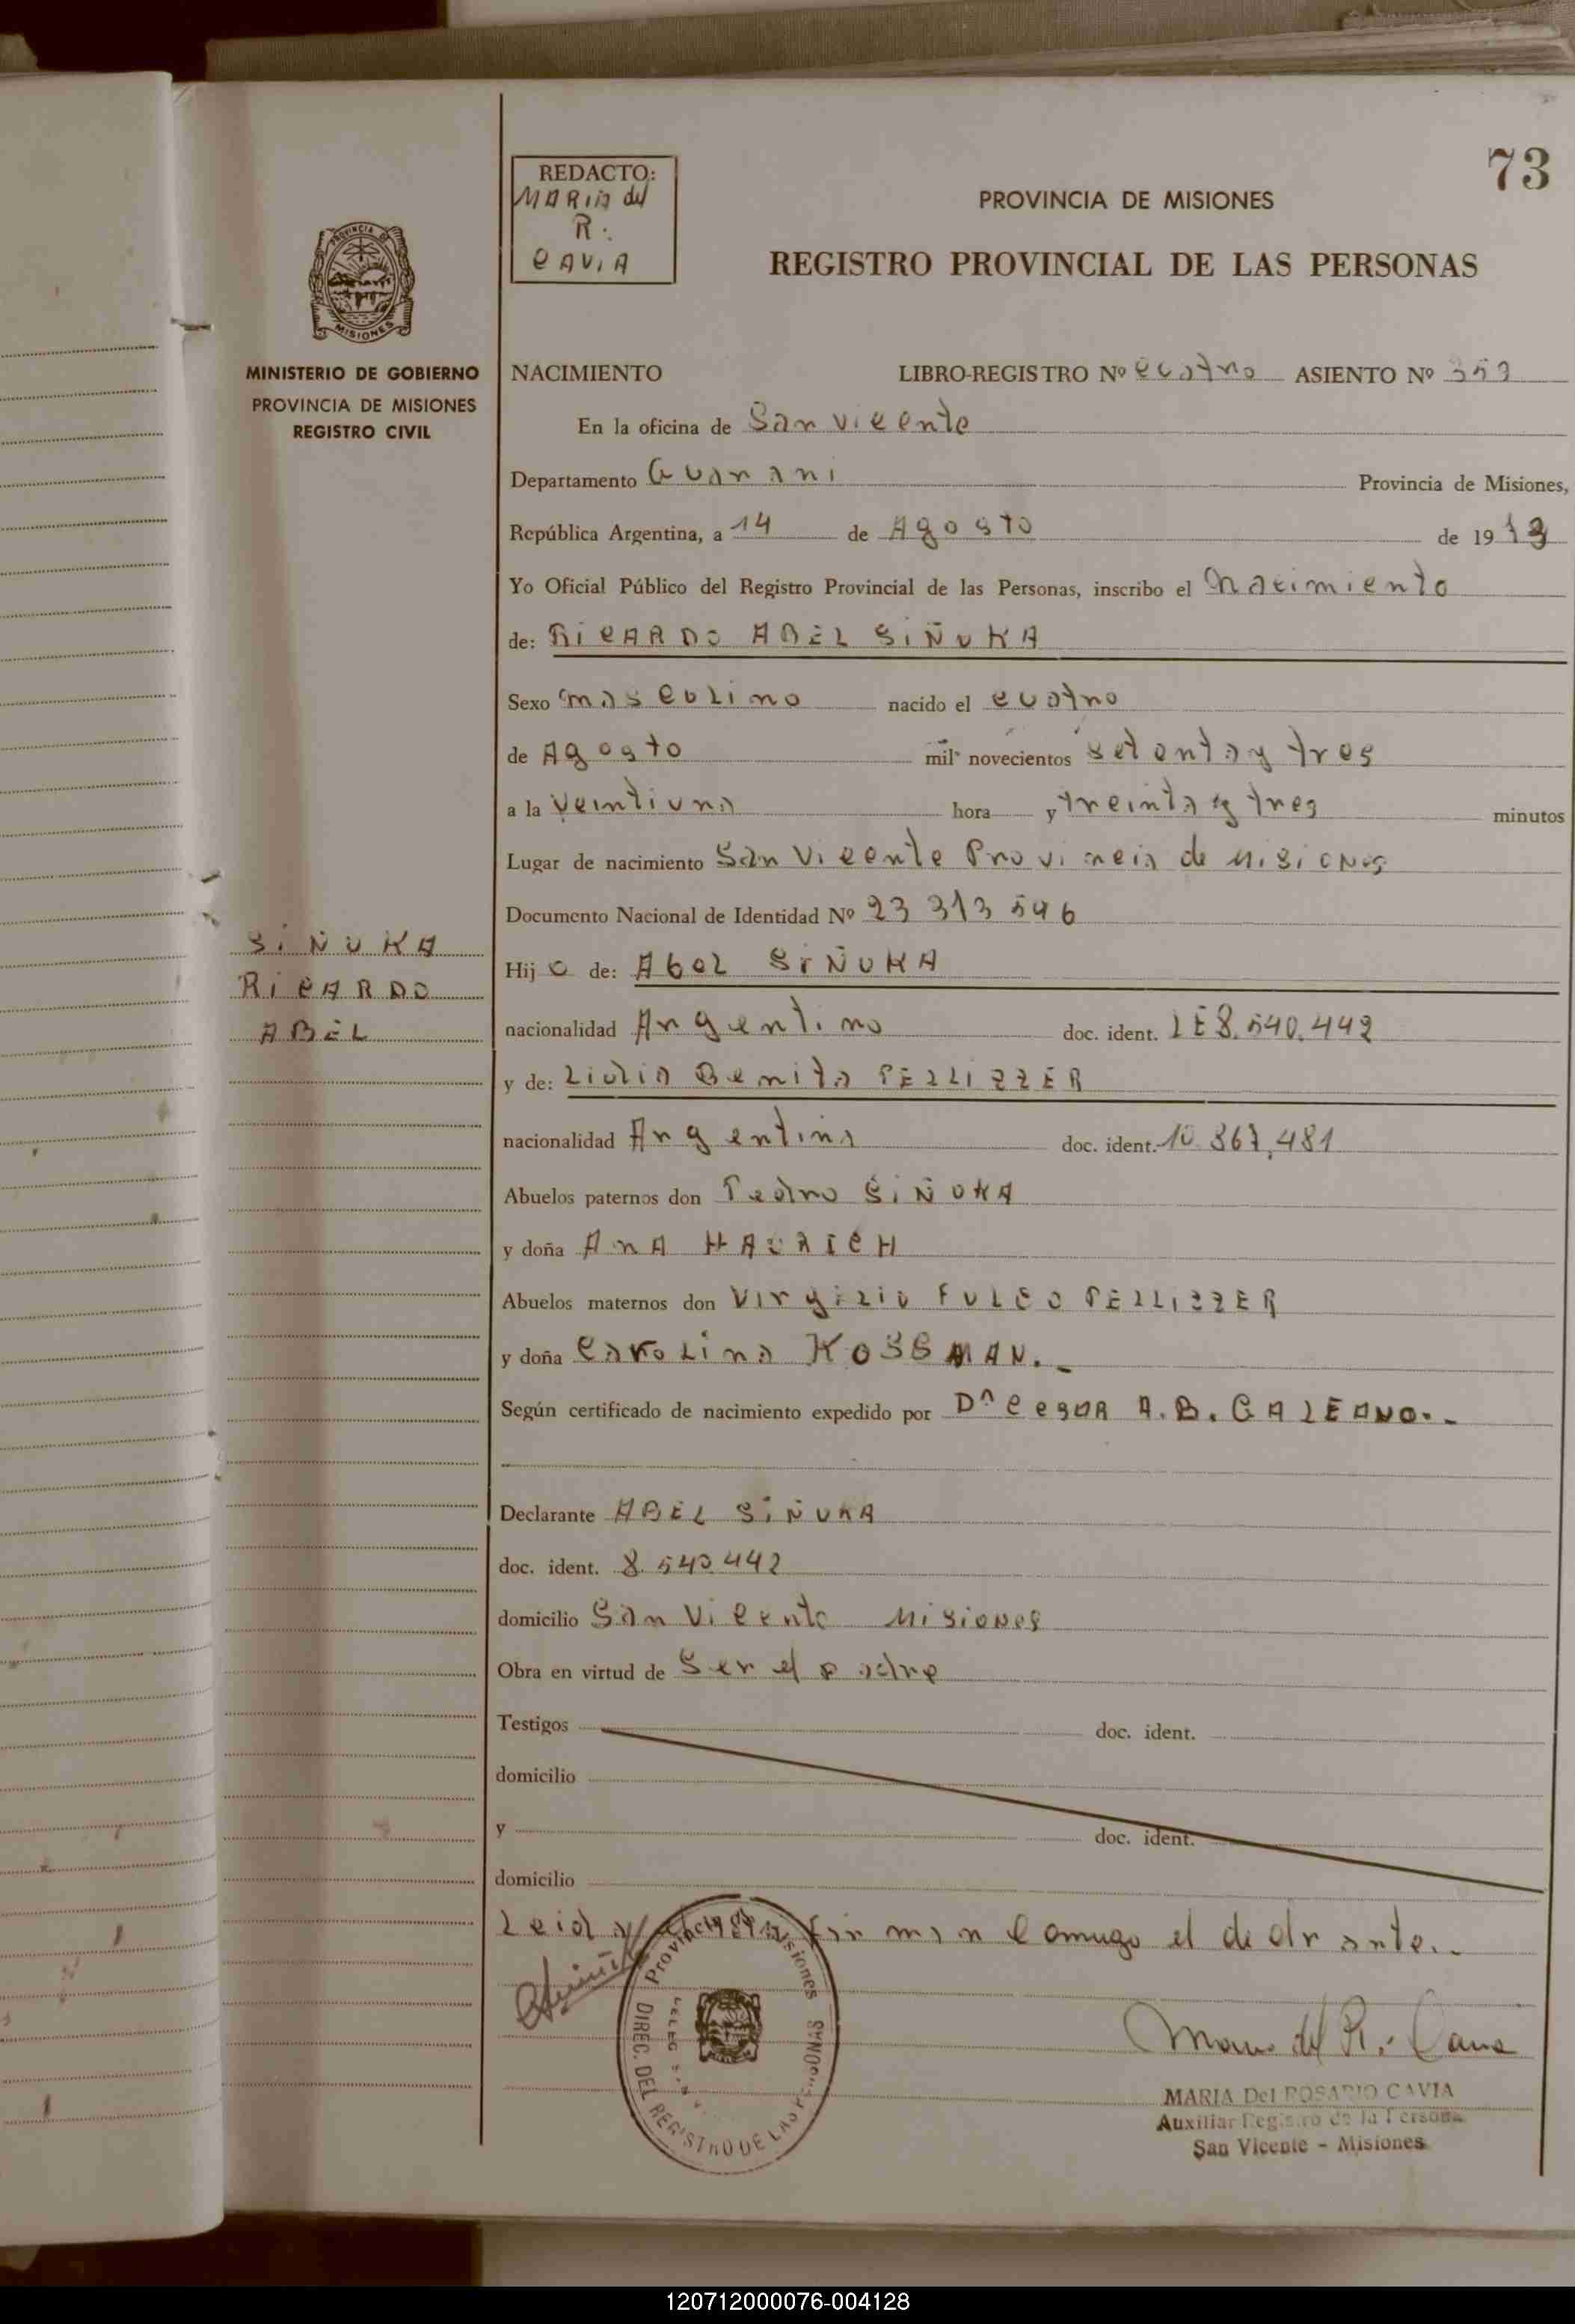 73
REDACTO:
MARIA del
R.
CAVIA
PROVINCIA DE MISIONES
REGISTRO PROVINCIAL DE LAS PERSONAS
PROVINCIA DE
MISIONES
MINISTERIO DE GOBIERNO
PROVINCIA DE MISIONES
REGISTRO CIVIL
NACIMIENTO LIBRO-REGISTRO Nº cuatro ASIENTO Nº
En la oficina de San Vicente
Departamento Guarani Provincia de Misiones,
República Argentina, a 14 de Agosto de 19
Yo Oficial Público del Registro Provincial de las Personas, inscribo el Nacimiento
de: RICARDO ABEL SIÑUKA
Sexo masculino nacido el cuatro
de Agosto mil novecientos setenta y tres
a la veintiuna hora y treinta y tres minutos
Lugar de nacimiento San Vicente Provincia de Misiones
Documento Nacional de Identidad Nº 23 313 546
SIÑUKA
RICARDO
ABEL
Hijo de: Abel SIÑUKA
nacionalidad Argentino doc. ident. LE 8.540.442
y de: Lidia Benita PELLIZZER
nacionalidad Argentina doc. ident. 10.867.481
Abuelos paternos don Pedro SIÑUKA
y doña ANA
Abuelos maternos don Virgilio FULCO PELLIZZER
y doña Carolina KOSSMAN.-
Según certificado de nacimiento expedido por Dr CESAR A.B. GALEANO.-
Declarante ABEL SIÑUKA
doc. ident. 8.540.442
domicilio San Vicente Misiones
Obra en virtud de Ser el padre
Testigos doc. ident.
domicilio
y doc. ident.
domicilio
Leida firman conmigo el
Provincia de Misiones
DIREC. DEL REGISTRO DE LAS PERSONAS
MARIA Del ROSARIO CAVIA
Auxiliar Registro de la Persona
San Vicente - Misiones
120712000076-004128